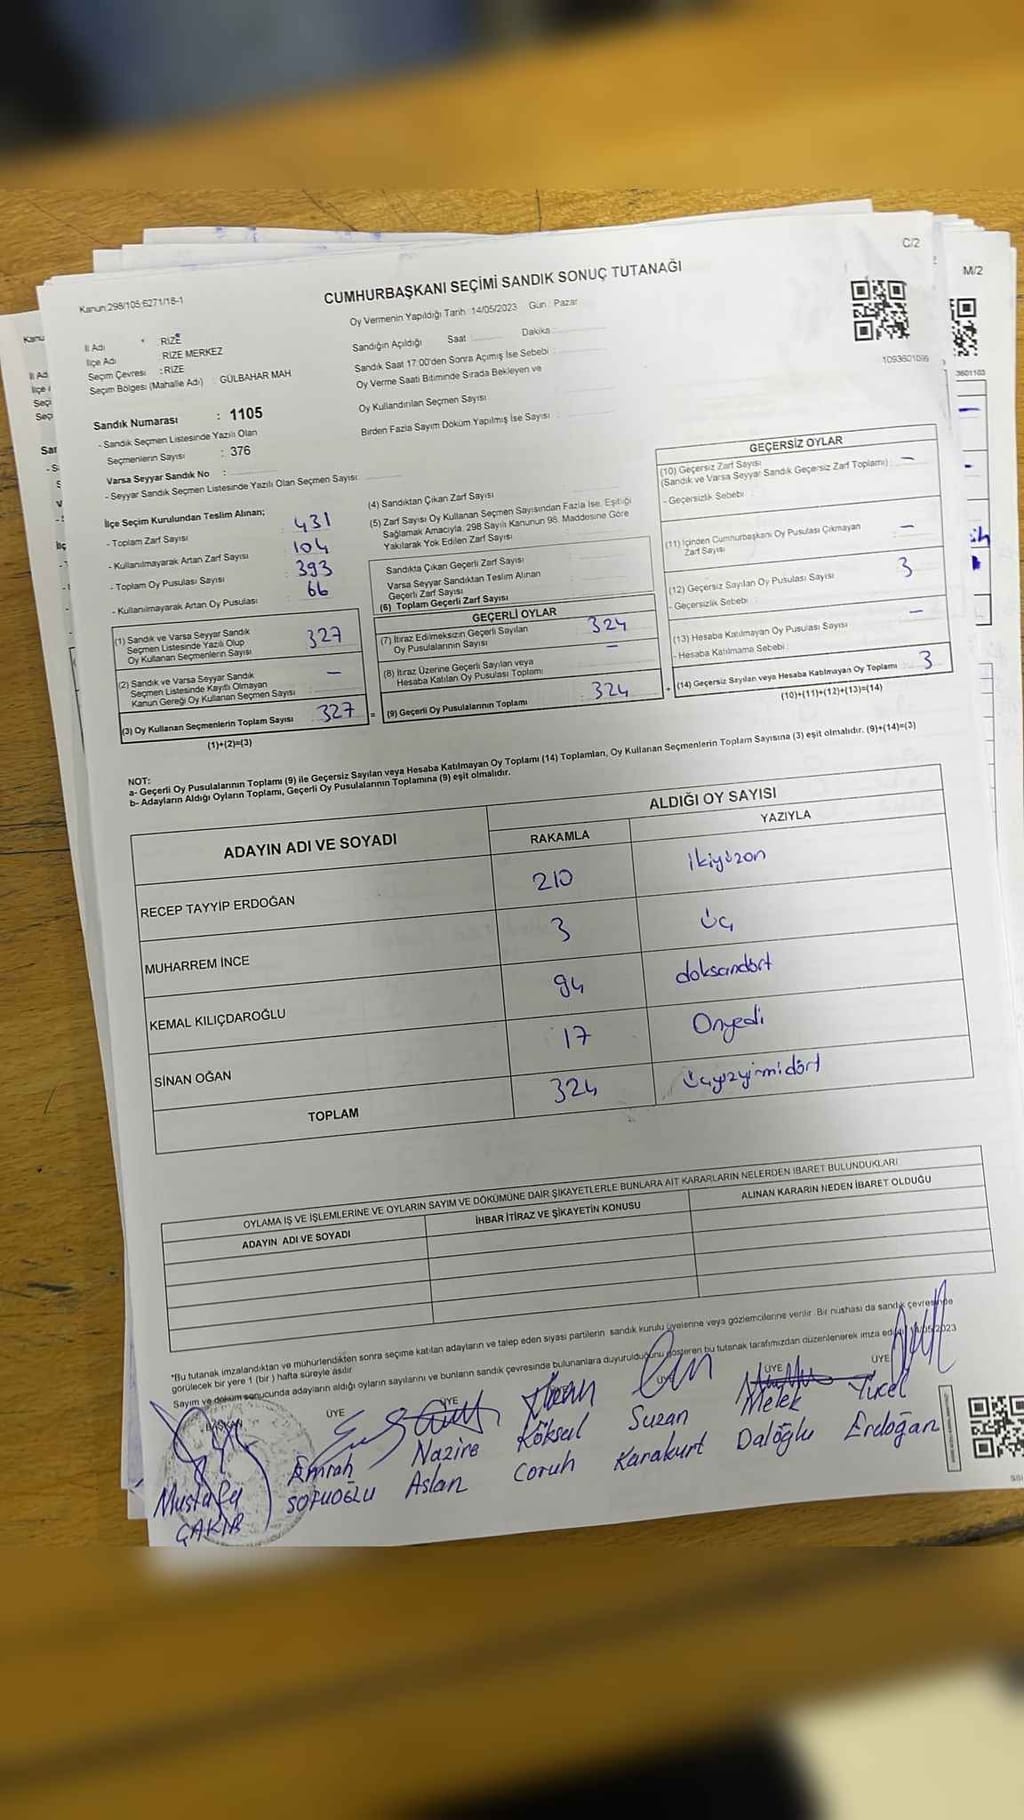 C/2
M/2
Kanun:298/105;6271/18-1
CUMHURBAŞKANI SEÇİMİ SANDIK SONUÇ TUTANAĞI
Oy Vermenin Yapıldığı Tarih 14/05/2023 Gün : Pazar
İl Adı : RİZE
İlçe Adı : RİZE MERKEZ
Seçim Çevresi : RİZE
Seçim Bölgesi (Mahalle Adı) : GÜLBAHAR MAH
Sandığın Açıldığı Saat Dakika
Sandık Saat 17:00'den Sonra Açımış İse Sebebi :
Oy Verme Saati Bitiminde Sırada Bekleyen ve
Oy Kullandırılan Seçmen Sayısı
Birden Fazla Sayım Döküm Yapılmış İse Sayısı
Sandık Numarası : 1105
- Sandık Seçmen Listesinde Yazılı Olan
Seçmenlerin Sayısı : 376
Varsa Seyyar Sandık No :
- Seyyar Sandık Seçmen Listesinde Yazılı Olan Seçmen Sayısı:
İlçe Seçim Kurulundan Teslim Alınan;
- Toplam Zarf Sayısı 431
- Kullanılmayarak Artan Zarf Sayısı 104
- Toplam Oy Pusulası Sayısı 393
- Kullanılmayarak Artan Oy Pusulası 66
(1) Sandık ve Varsa Seyyar Sandık
Seçmen Listesinde Yazılı Olup
Oy Kullanan Seçmenlerin Sayısı 327
(2) Sandık ve Varsa Seyyar Sandık
Seçmen Listesinde Kayıtlı Olmayan
Kanun Gereği Oy Kullanan Seçmen Sayısı —
(3) Oy Kullanan Seçmenlerin Toplam Sayısı 327
(1)+(2)=(3)
(4) Sandıktan Çıkan Zarf Sayısı
(5) Zarf Sayısı Oy Kullanan Seçmen Sayısından Fazla İse, Eşitliği
Sağlamak Amacıyla, 298 Sayılı Kanunun 98. Maddesine Göre
Yakılarak Yok Edilen Zarf Sayısı
Sandıkta Çıkan Geçerli Zarf Sayısı
Varsa Seyyar Sandıktan Teslim Alınan
Geçerli Zarf Sayısı
(6) Toplam Geçerli Zarf Sayısı
GEÇERLİ OYLAR
(7) İtiraz Edilmeksizin Geçerli Sayılan
Oy Pusulalarının Sayısı 324
(8) İtiraz Üzerine Geçerli Sayılan veya
Hesaba Katılan Oy Pusulası Toplamı —
(9) Geçerli Oy Pusulalarının Toplamı 324
GEÇERSİZ OYLAR
(10) Geçersiz Zarf Sayısı
(Sandık ve Varsa Seyyar Sandık Geçersiz Zarf Toplamı) —
- Geçersizlik Sebebi
(11) İçinden Cumhurbaşkanı Oy Pusulası Çıkmayan
Zarf Sayısı —
(12) Geçersiz Sayılan Oy Pusulası Sayısı 3
- Geçersizlik Sebebi :
(13) Hesaba Katılmayan Oy Pusulası Sayısı —
- Hesaba Katılmama Sebebi :
(14) Geçersiz Sayılan veya Hesaba Katılmayan Oy Toplamı 3
(10)+(11)+(12)+(13)=(14)
NOT:
a- Geçerli Oy Pusulalarının Toplamı (9) ile Geçersiz Sayılan veya Hesaba Katılmayan Oy Toplamı (14) Toplamları, Oy Kullanan Seçmenlerin Toplam Sayısına (3) eşit olmalıdır. (9)+(14)=(3)
b- Adayların Aldığı Oyların Toplamı, Geçerli Oy Pusulalarının Toplamına (9) eşit olmalıdır.
ADAYIN ADI VE SOYADI
ALDIĞI OY SAYISI
RAKAMLA YAZIYLA
RECEP TAYYİP ERDOĞAN 210 ikiyüzon
MUHARREM İNCE 3 üç
KEMAL KILIÇDAROĞLU 94 doksandört
SİNAN OĞAN 17 Onyedi
TOPLAM 324 üçyüzyirmidört
OYLAMA İŞ VE İŞLEMLERİNE VE OYLARIN SAYIM VE DÖKÜMÜNE DAİR ŞİKAYETLERLE BUNLARA AİT KARARLARIN NELERDEN İBARET BULUNDUKLARI
ADAYIN ADI VE SOYADI
İHBAR İTİRAZ VE ŞİKAYETİN KONUSU
ALINAN KARARIN NEDEN İBARET OLDUĞU
*Bu tutanak imzalandıktan ve mühürlendikten sonra seçime katılan adayların ve talep eden siyasi partilerin sandık kurulu üyelerine veya gözlemcilerine verilir. Bir nüshası da sandık çevresinde
görülecek bir yere 1 (bir) hafta süreyle asılır.
Sayım ve döküm sonucunda adayların aldığı oyların sayılarını ve bunların sandık çevresinde bulunanlara duyurulduğunu gösteren bu tutanak tarafımızdan düzenlenerek imza
BAŞKAN ÜYE ÜYE ÜYE ÜYE ÜYE
Mustafa ÇAKIR
Emrah SOFUOĞLU
Nazire Aslan
Köksal Coruh
Suzan Karakurt
Melek Daloğlu
Yücel Erdoğan